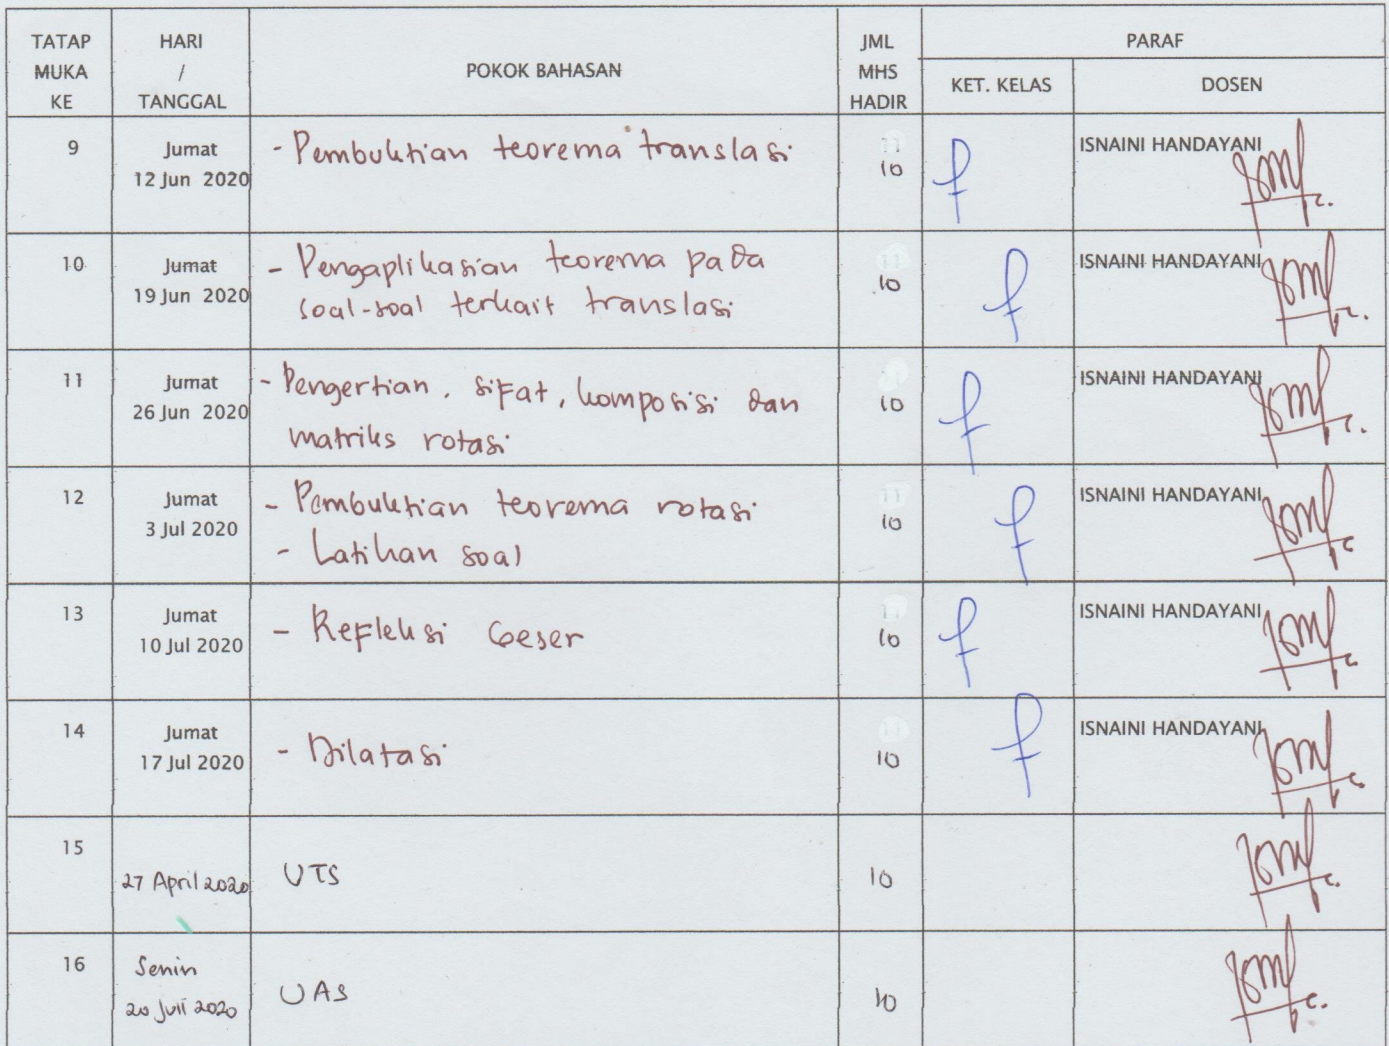 TATAP MUKA KE
HARI / TANGGAL
POKOK BAHASAN
JML MHS HADIR
PARAF
KET. KELAS
DOSEN
9
Jumat
12 Jun 2020
- Pembuktian teorema translasi
10
ISNAINI HANDAYANI
10
Jumat
19 Jun 2020
- Pengaplikasian teorema pada
soal-soal terkait translasi
10
ISNAINI HANDAYANI
11
Jumat
26 Jun 2020
- Pengertian, sifat, komposisi dan
matriks rotasi
10
ISNAINI HANDAYANI
12
Jumat
3 Jul 2020
- Pembuktian teorema rotasi
- Latihan soal
10
ISNAINI HANDAYANI
13
Jumat
10 Jul 2020
- Refleksi Geser
10
ISNAINI HANDAYANI
14
Jumat
17 Jul 2020
- Dilatasi
10
ISNAINI HANDAYANI
15
27 April 2020
UTS
10
16
Senin
20 Juli 2020
UAS
10